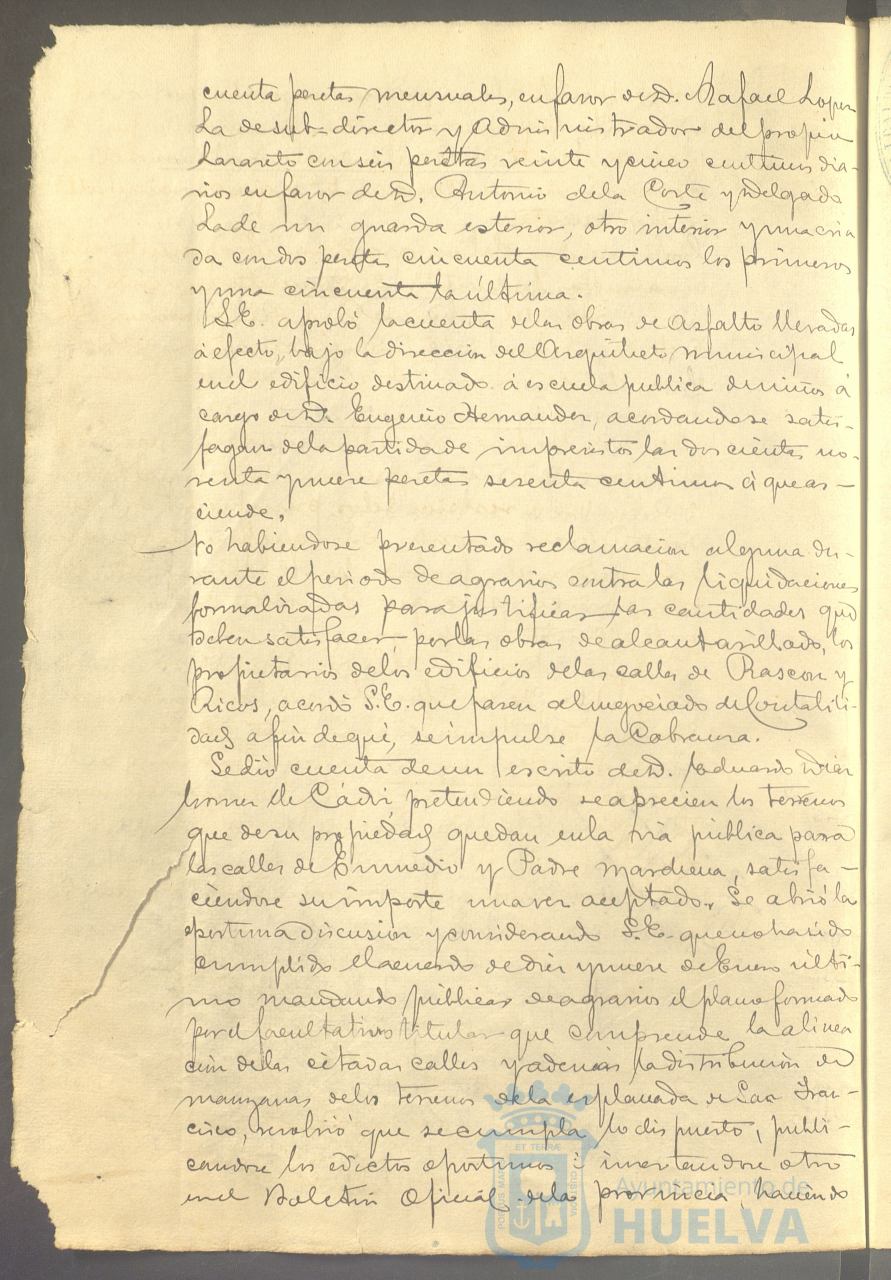 cuenta pesetas mensuales, en favor de D. Rafael Lopez
La de sub-director y Administrador del propio
Lazareto con seis pesetas veinte y cinco centimos dia-
rios en favor de D. Antonio de la Corte y Delgado
La de un guarda exterior, otro interior y una cria
da con dos pesetas cincuenta centimos los primeros
y una cincuenta la última.
S.E. aprobó la cuenta de las obras de asfalto llevadas
á efecto, bajo la dirección del Arquitecto municipal
en el edificio destinado á escuela publica de niños á
cargo de D. Eugenio Hernandez, acordandose satis-
fagan de la partida de imprevistos las doscientas no-
venta y nueve pesetas sesenta centimos á que as-
ciende.
No habiendose presentado reclamacion alguna du-
rante el periodo de agravios contra las liquidaciones
formalizadas para justificar las cantidades que
deben satisfacer, por las obras de alcantarillado, los
propietarios de los edificios de las calles de Rascon y
Ricos, acordó S.E. que pasen al negociado de Contabili-
dad afin de que, se impulse la Cobranza.
Se dió cuenta de un escrito de D. Eduardo Diaz
de Cádiz pretendiendo se aprecien los terrenos
que de su propiedad quedan en la via pública para
las calles de Enmedio y Padre Marchena, satisfa-
ciendose su importe una vez aceptado. Se abrió la
oportuna discusion y considerando S.E. que no ha sido
cumplido el acuerdo de diez y nueve de Enero últi-
mo mandando públicar de agravios el plano formado
por el facultativo titular que comprende la alinea
ción de las citadas calles y ademas la distribución de
manzanas de los terrenos de la esplanada de San Fran-
cisco, resolvió que se cumpla lo dispuesto, publi-
candose los edictos oportunos é insertandose otro
en el Boletin Oficial de la provincia, haciendo
Ayuntamiento de
HUELVA